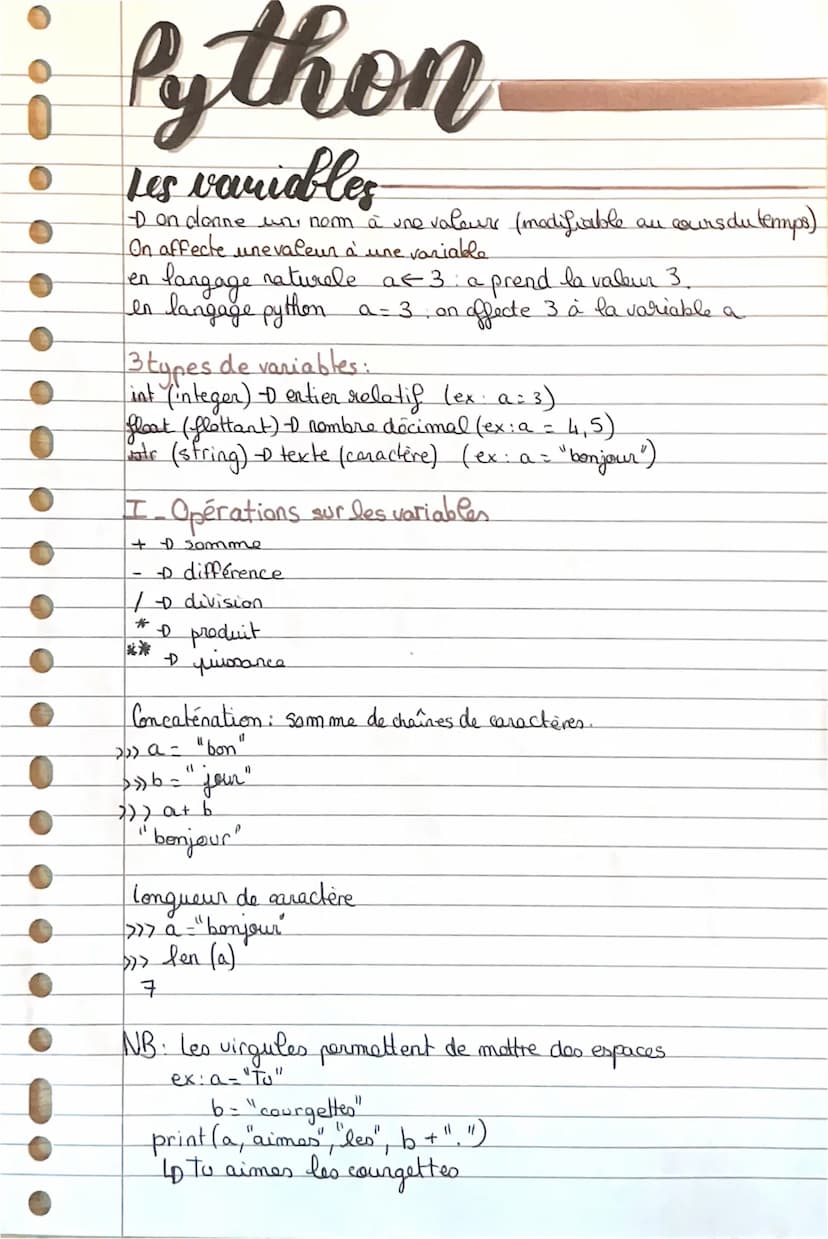 Python
Les variables
→ on donne un nom à une valeure (modifiable au cours du temps)
On affecte une valeur à une variable
en langage naturele a ← 3 : a prend la valeur 3.
en langage python a = 3 : on affecte 3 à la variable a
3 types de variables :
int (integer) → entier relatif (ex : a = 3)
float (flottant) → nombre décimal (ex : a = 4,5)
str (string) → texte (caractère) (ex : a = "bonjour")
I - Opérations sur les variables
+ → somme
- → différence
/ → division
* → produit
** → puissance
Concaténation : somme de chaînes de caractères.
>>> a = "bon"
>>> b = "jour"
>>> a + b
"bonjour"
longueur de caractère
>>> a = "bonjour"
>>> len (a)
7
NB : Les virgules permettent de mettre des espaces
ex : a = "Tu"
b = "courgettes"
print (a, "aimes", "les", b + ".")
↳ Tu aimes les courgettes